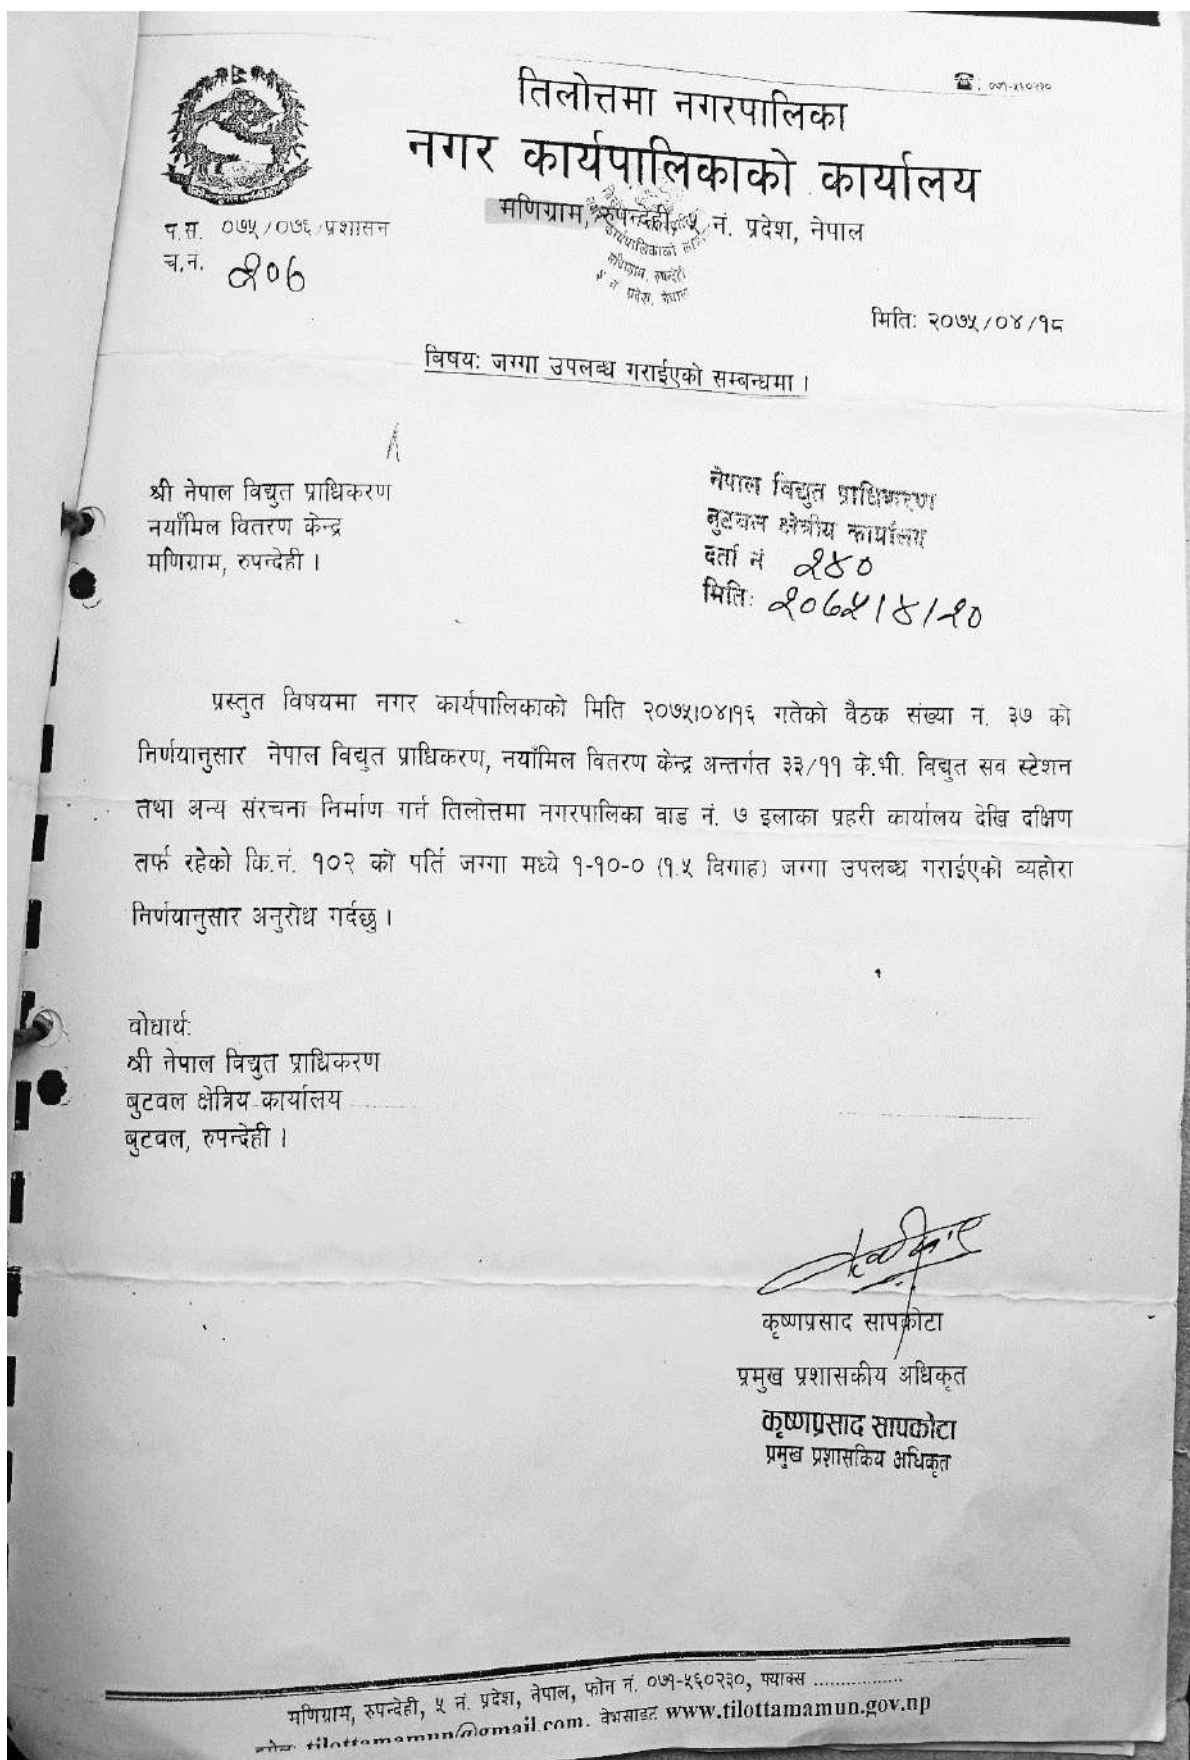 तिलोत्तमा नगरपालिका
☎: ०७१-५६०२३०
नगर कार्यपालिकाको कार्यालय
मणिग्राम, रुपन्देही, ५ नं. प्रदेश, नेपाल
कार्यपालिकाको
मणिग्राम, रुपन्देही
५ नं प्रदेश, नेपाल
प.स. ०७५/०७६/प्रशासन
च.नं. २०७
मितिः २०७५/०४/१८
बिषयः जग्गा उपलब्ध गराईएको सम्बन्धमा ।
श्री नेपाल विद्युत प्राधिकरण
नयाँमिल वितरण केन्द्र
मणिग्राम, रुपन्देही ।
नेपाल विद्युत प्राधिकरण
बुटवल क्षेत्रीय कार्यालय
दर्ता नं २४०
मितिः २०७५।४।२०
प्रस्तुत विषयमा नगर कार्यपालिकाको मिति २०७५।०४।१६ गतेको वैठक संख्या न. ३७ को
निर्णयानुसार नेपाल विद्युत प्राधिकरण, नयाँमिल वितरण केन्द्र अन्तर्गत ३३/११ के.भी. विद्युत सव स्टेशन
तथा अन्य संरचना निर्माण गर्न तिलोत्तमा नगरपालिका वाड नं. ७ इलाका प्रहरी कार्यालय देखि दक्षिण
तर्फ रहेको कि.नं. १०२ को पर्ति जग्गा मध्ये १-१०-० (१.५ विगाह) जग्गा उपलब्ध गराईएको व्यहोरा
निर्णयानुसार अनुरोध गर्दछु ।
वोधार्थ:
श्री नेपाल विद्युत प्राधिकरण
बुटवल क्षेत्रिय कार्यालय
बुटवल, रुपन्देही ।
कृष्णप्रसाद सापकोटा
प्रमुख प्रशासकीय अधिकृत
कृष्णप्रसाद सापकोटा
प्रमुख प्रशासकिय अधिकृत
मणिग्राम, रुपन्देही, ५ नं. प्रदेश, नेपाल, फोन नं. ०७१-५६०२३०, फ्याक्स ..................
tilottamamun@gmail.com. वेभसाइट www.tilottamamun.gov.np